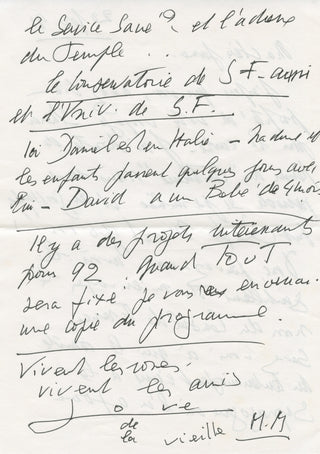 le Service Sacré et l'adresse
du Temple . .
le Conservatoire de S F - aussi
et l'Univ. de S.F.
Ici Daniel est en Italie - Nadine et
les enfants passent quelques jours avec
lui - David a un Bébé de 4 mois
Il y a des projets intéressants
pour 92. Quand TOUT
sera fixé je vous en enverrai
une copie du programme.
Vivent les roses.
vivent les amis
Love
de
la vieille M.M